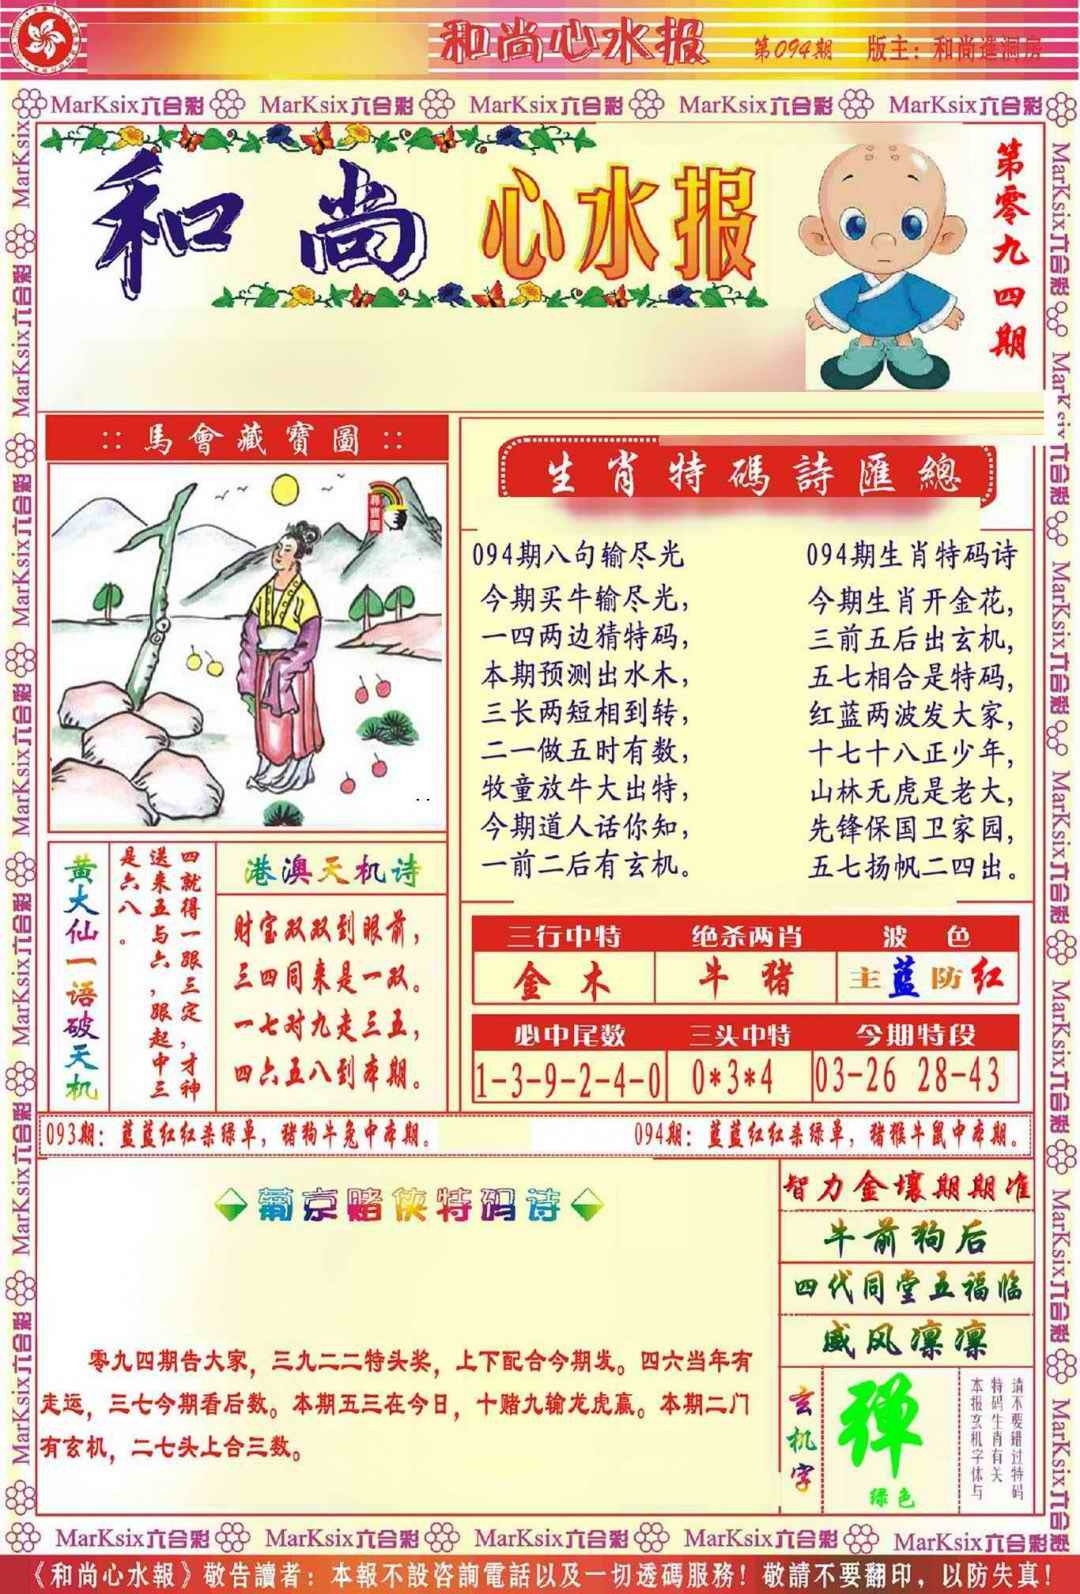 和尚心水报 第094期 版主：和尚進洞房
MarKsix六合彩 MarKsix六合彩 MarKsix六合彩 MarKsix六合彩 MarKsix六合彩
和尚心水报
第零九四期
::馬會藏寶圖::
尋寶圖
生肖特碼詩匯總
094期八句输尽光
今期买牛输尽光，
一四两边猜特码，
本期预测出水木，
三长两短相到转，
二一做五时有数，
牧童放牛大出特，
今期道人话你知，
一前二后有玄机。
094期生肖特码诗
今期生肖开金花，
三前五后出玄机，
五七相合是特码，
红蓝两波发大家，
十七十八正少年，
山林无虎是老大，
先锋保国卫家园，
五七扬帆二四出。
黄大仙一语破天机
四就得一跟三定，才神
送来五与六，跟起中三
是六八。
港澳天机诗
财宝双双到眼前，
三四同来是一双。
一七对九走三五，
四六五八到本期。
三行中特 绝杀两肖 波色
金木 牛猪 主蓝防红
必中尾数 三头中特 今期特段
1-3-9-2-4-0 0*3*4 03-26 28-43
093期：蓝蓝红红杀绿单，猪狗牛兔中本期。
094期：蓝蓝红红杀绿单，猪猴牛鼠中本期。
葡京赌侠特码诗
零九四期告大家，三九二二特头奖，上下配合今期发。四六当年有
走运，三七今期看后数。本期五三在今日，十赌九输龙虎赢。本期二门
有玄机，二七头上合三数。
智力金壤期期准
牛前狗后
四代同堂五福临
威风凛凛
玄机字
弹
绿色
请不要错过特码
特码生肖有关
本报玄机字体与
MarKsix六合彩 MarKsix六合彩 MarKsix六合彩 MarKsix六合彩 MarKsix六合彩
《和尚心水報》敬告讀者：本報不設咨詢電話以及一切透碼服務！敬請不要翻印，以防失真！